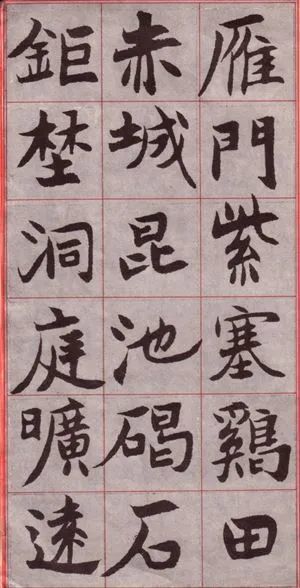 雁門紫塞鷄田
赤城昆池碣石
鉅埜洞庭曠遠